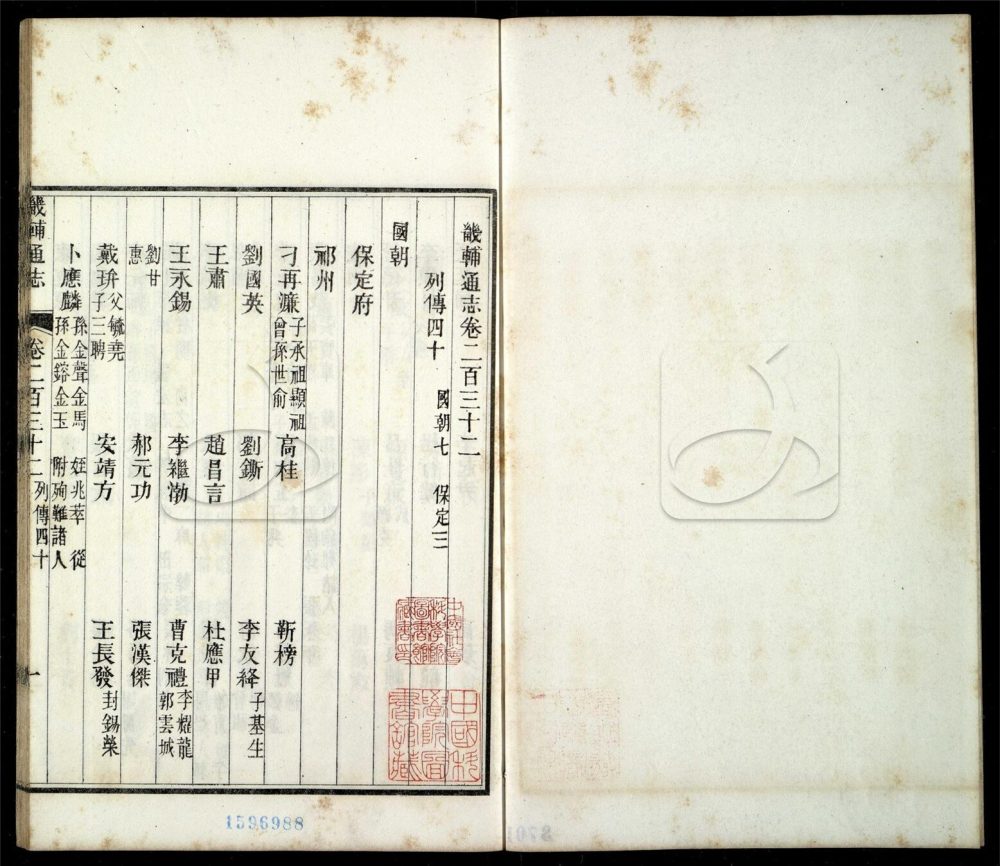 畿輔通志卷二百三十二
列傳四十　國朝七　保定三
國朝
保定府
祁州
刁再濂子承祖顯祖曾孫世俞　高桂　靳榜
劉國英　劉鐁　李友絳子基生
王肅　趙昌言　杜應甲
王永錫　李繼渤　曹克禮李耀龍郭雲城
劉甘惠　郝元功　張漢傑
戴玶父毓堯子三聘　安靖方　王長發封錫榮
卜應麟孫金聲金馬孫金鎔金玉　姪兆萃　從附殉難諸人
畿輔通志　卷二百三十二列傳四十　一
中國科學院圖書館藏
1596988